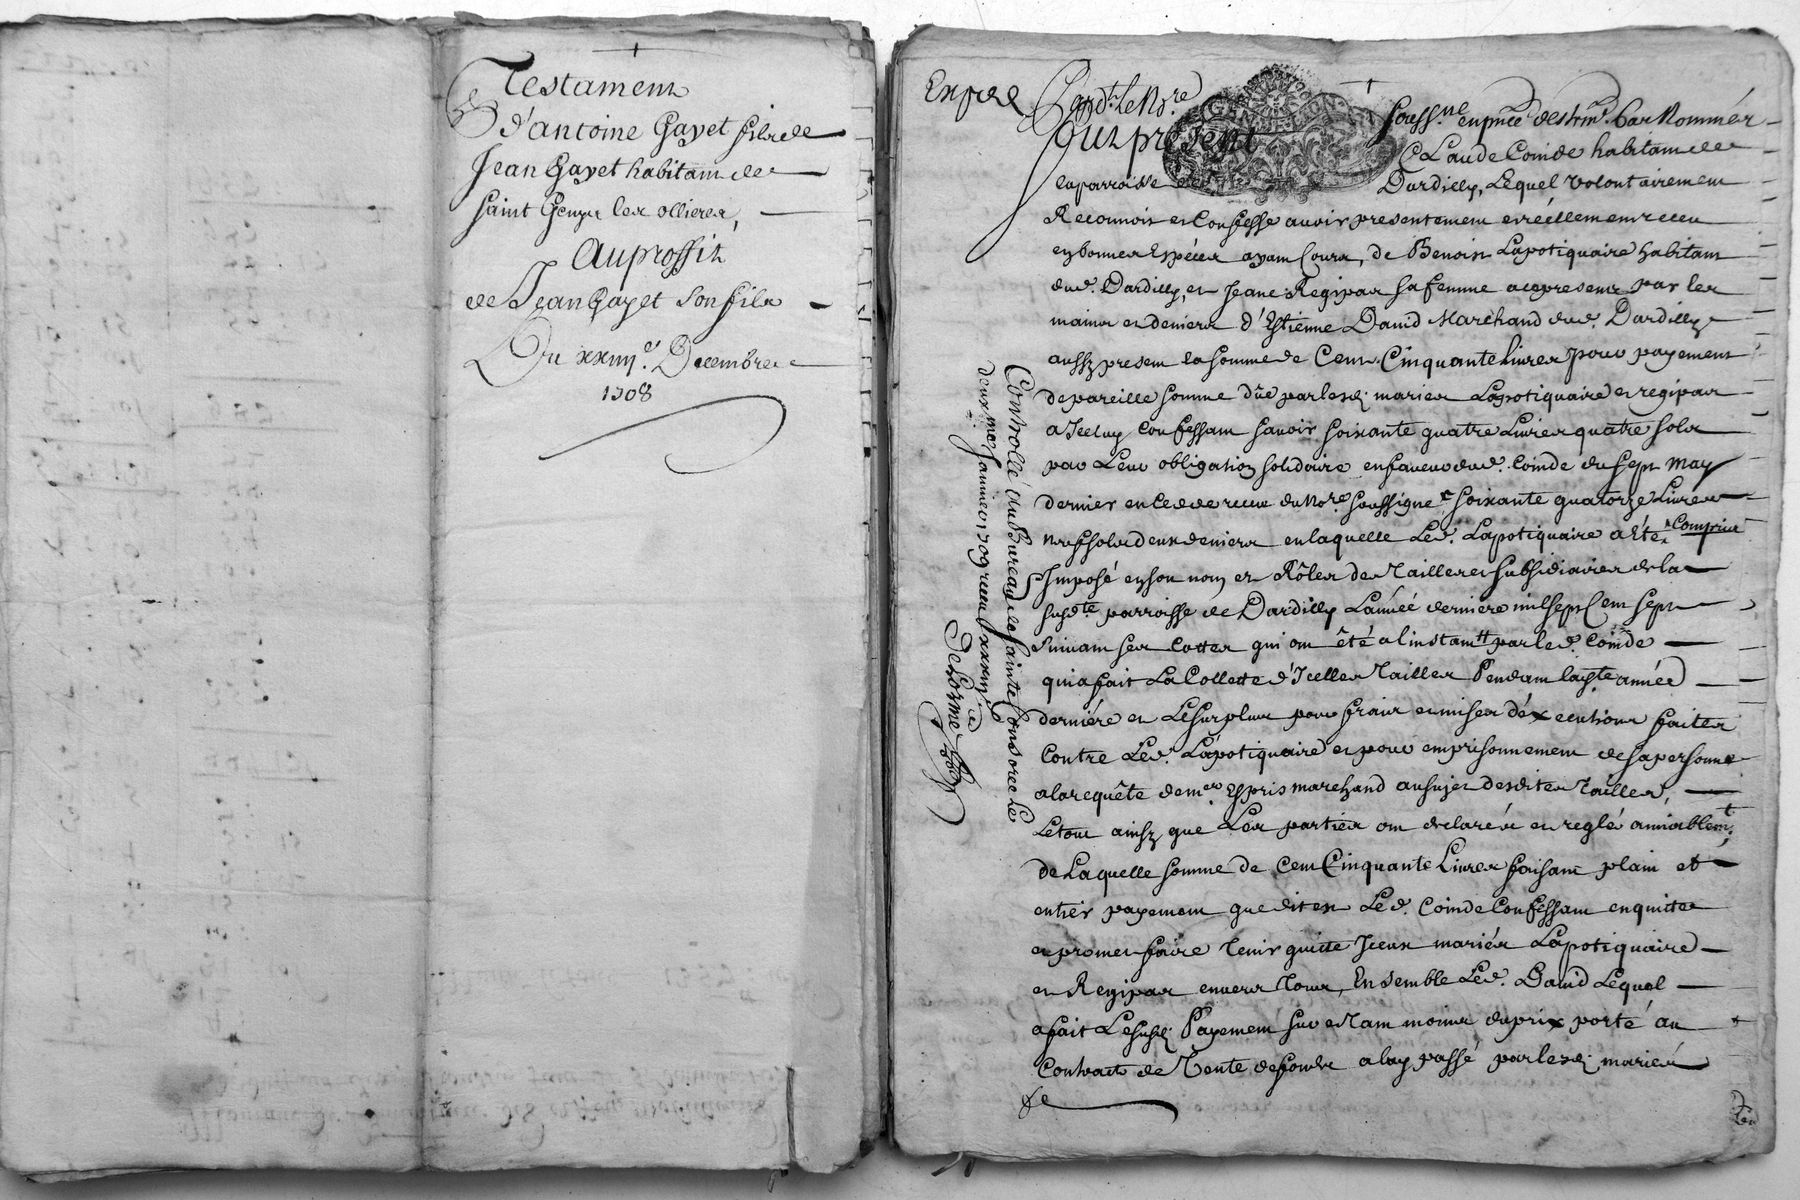 Testament
d'antoine Gayet fils de
Jean Gayet habitant de
saint Genys les ollieres,
Au proffit
de Jean Gayet son fils
Du xxiiij.e Decembre
1708
Exped
Pard.t le No.re
soub.né en p.nce des tem. bas Nommés
Fut present
Claude Coinde habitant de
la parroisse de
Dardilly, Lequel volontairement
Reconnoit et Confesse avoir presentement et réellement receu
en bonnes Espéces ayant Cours, de Benoist Lapotiquaire habitant
dud. Dardilly, et Jeane Regipas sa femme ace presents par les
mains et deniers d'Estienne David Marchand dud. Dardilly
aussy present la somme de Cent Cinquante Livres pour payement
de pareille somme düe par lesd. mariés Lapotiquaire et regipas
a Iceluy Confessant savoir soixante quatre Livres quatre sols
par Leur obligation solidaire en faveur dud. Coinde du sept May
dernier en Cedde receue du No.re soussigné soixante quatorze Livres
neuf sols deux deniers en laquelle Led. Lapotiquaire a Eté Compris
Imposé en son nom et Rôles des Tailles et subsidiaires de la
susd.te parroisse de Dardilly L'année derniere mil sept Cent sept
suivant ses Cottes qui ont êté a l'instant par led. Coinde
qui a fait La Collette d'Icelles Tailles Pendant lad.te année
derniére et Le surplus pour frais et mises d'éxecutions faites
Contre Led. Lapotiquaire et pour emprisonnement de sa personne
a la requête de m.er Espris marchand au sujet desdites Tailles,
Le tout ainsy que Les parties ont declaré et reglé amiablem.t
de Laquelle somme de Cent Cinquante Livres faisant plain et
entier payement que dit est Led. Coinde Confessant en quitte
et promet faire Tenir quitte Iceux mariés Lapotiquaire
et Regipas envers Tous, Ensemble Led. David Lequel
a fait Le susd. Payement sur et Tant moins du prix porté au
Contract de Vente de fonds a luy passé par lesd. mariés
Controllé au Bureau de sainte Consorce Le
deux.me janvier 1709 receu
Delorme